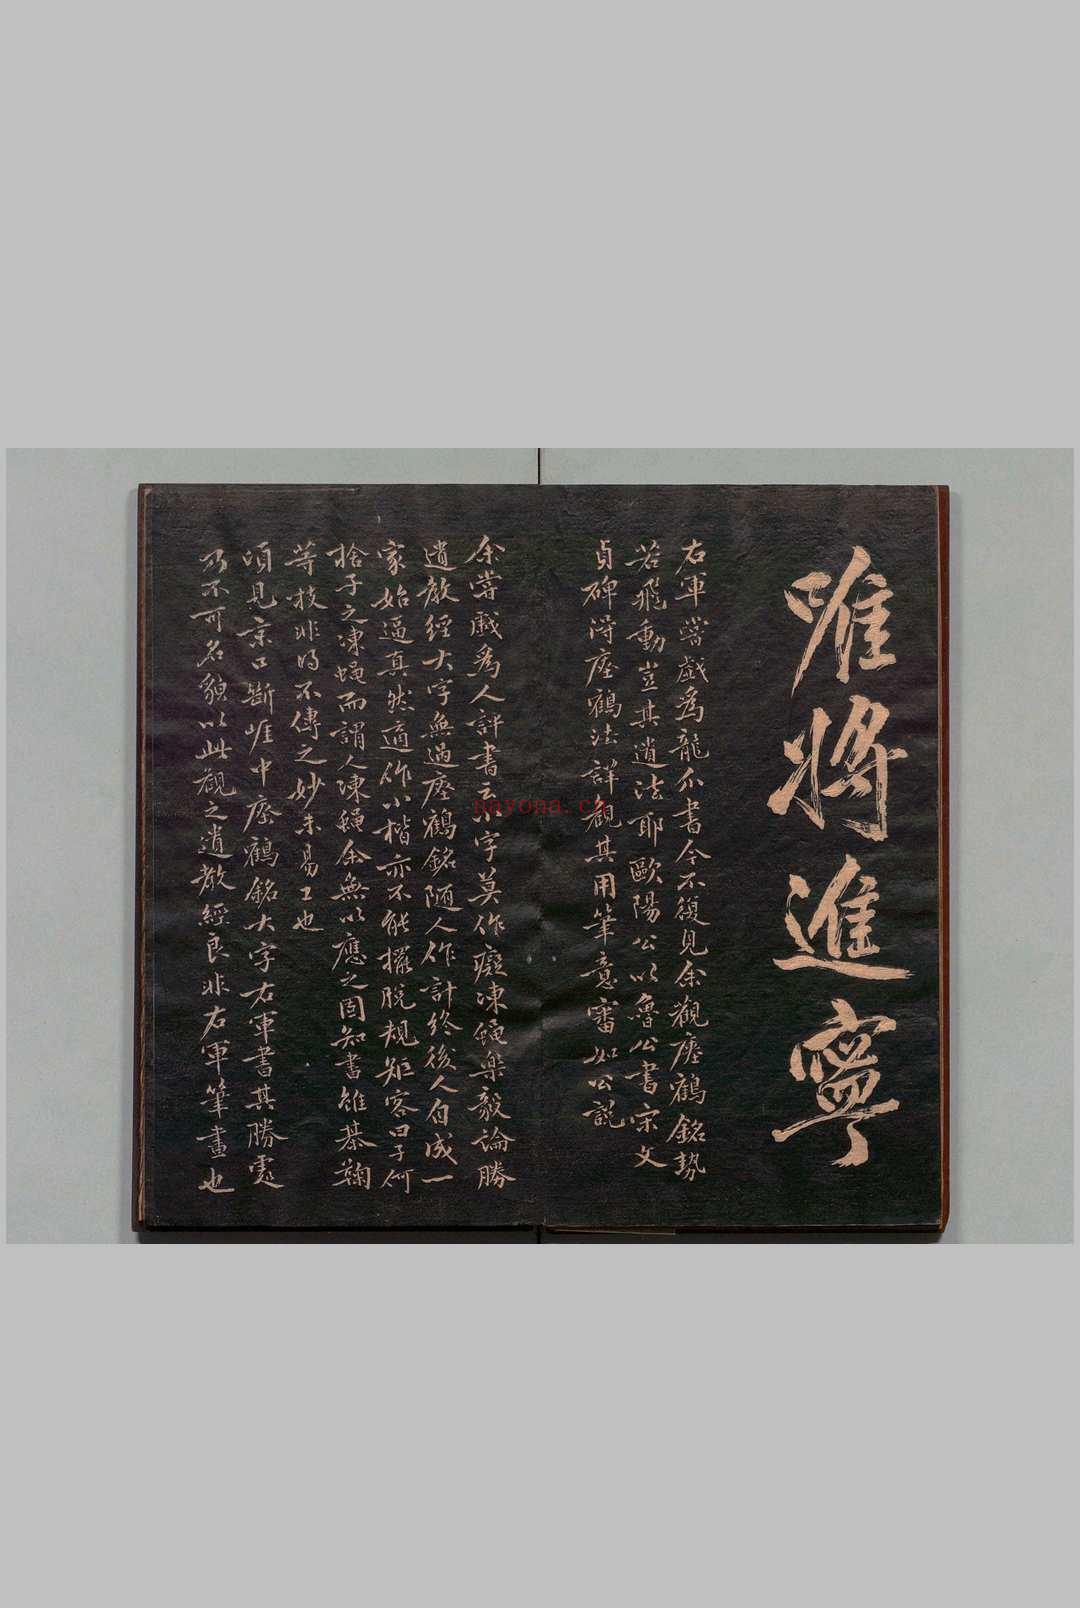 唯將進寧
右軍嘗戲為龍爪書今不復見余觀瘞鶴銘勢
若飛動豈其遺法耶歐陽公以魯公書宋文
貞碑得瘞鶴法詳觀其用筆意審如公說
余嘗戲為人評書云小字莫作癡凍蠅樂毅論勝
遺教經大字無過瘞鶴銘隨人作計終後人自成一
家始逼真然適作小楷亦不能擺脫規矩客曰子何
捨子之凍蠅而謂人凍蠅余無以應之固知書雖棊鞠
等技非得不傳之妙未易工也
頃見京口斷崖中瘞鶴銘大字右軍書其勝處
乃不可名貌以此觀之遺教經良非右軍筆畫也
nayona.cn